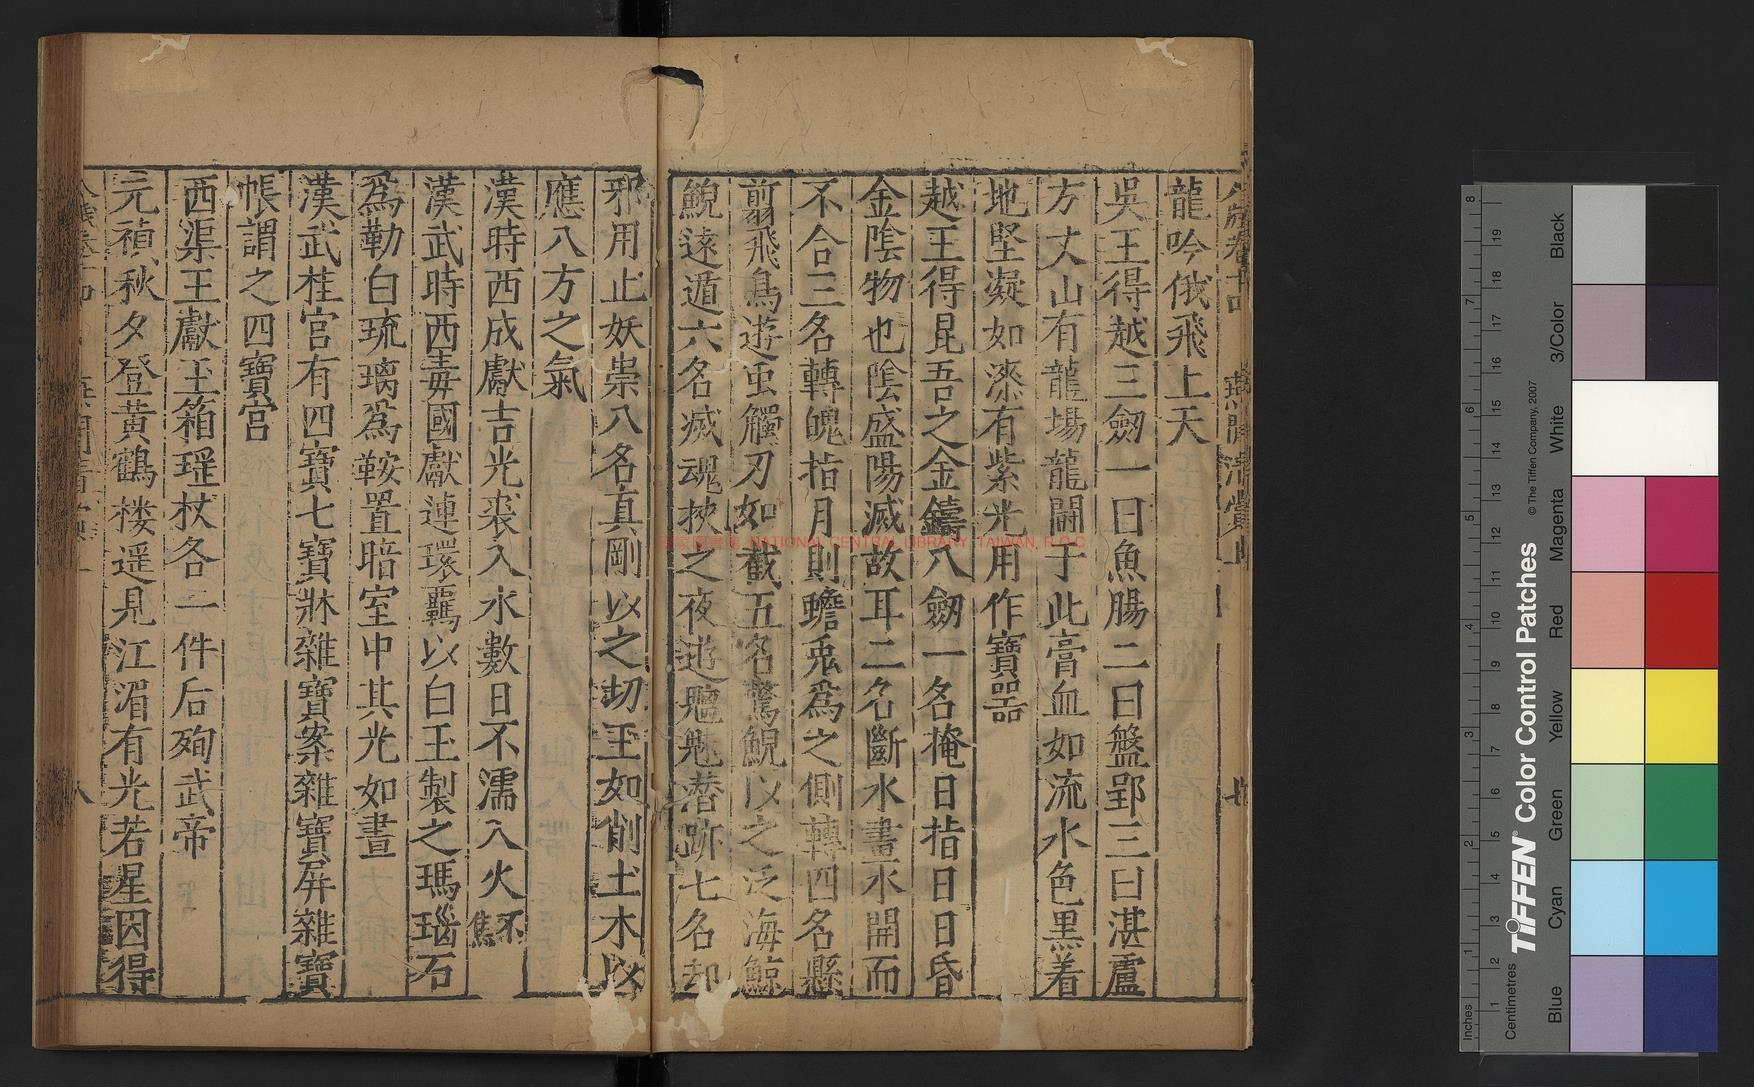 龍吟俄飛上天
吳王得越三劒一曰魚腸二曰盤郢三曰湛盧
方丈山有龍場龍鬪于此膏血如流水色黒着
地堅凝如漆有紫光用作寶噐
越王得昆吾之金鑄八劒一名掩日指日日昏
金陰物也陰盛陽滅故耳二名斷水畫水開而
不合三名轉魄指月則蟾兎爲之側轉四名懸
翦飛鳥遊虫觸刃如截五名驚鯢以之泛海鯨
鯢逺遁六名滅魂挾之夜逰魑魅潜跡七名却
邪用止妖祟八名真剛以之切玉如削土木以
應八方之氣
漢時西成獻吉光裘入水數日不濡入火不焦
漢武時西毒國獻連環羈以白玉製之瑪瑙石
爲勒白琉璃爲鞍置暗室中其光如晝
漢武桂宫有四寶七寶牀雜寶案雜寶屏雜寶
帳謂之四寶宫
西渠王獻玉箱瑶杖各一件后殉武帝
元禎秋夕登黄鶴楼遥見江湄有光若星因得
NATIONAL CENTRAL LIBRARY, TAIWAN, R.O.C
Inches
Centimetres
TIFFEN® Color Control Patches
© The Tiffen Company, 2007
Blue
Cyan
Green
Yellow
Red
Magenta
White
3/Color
Black